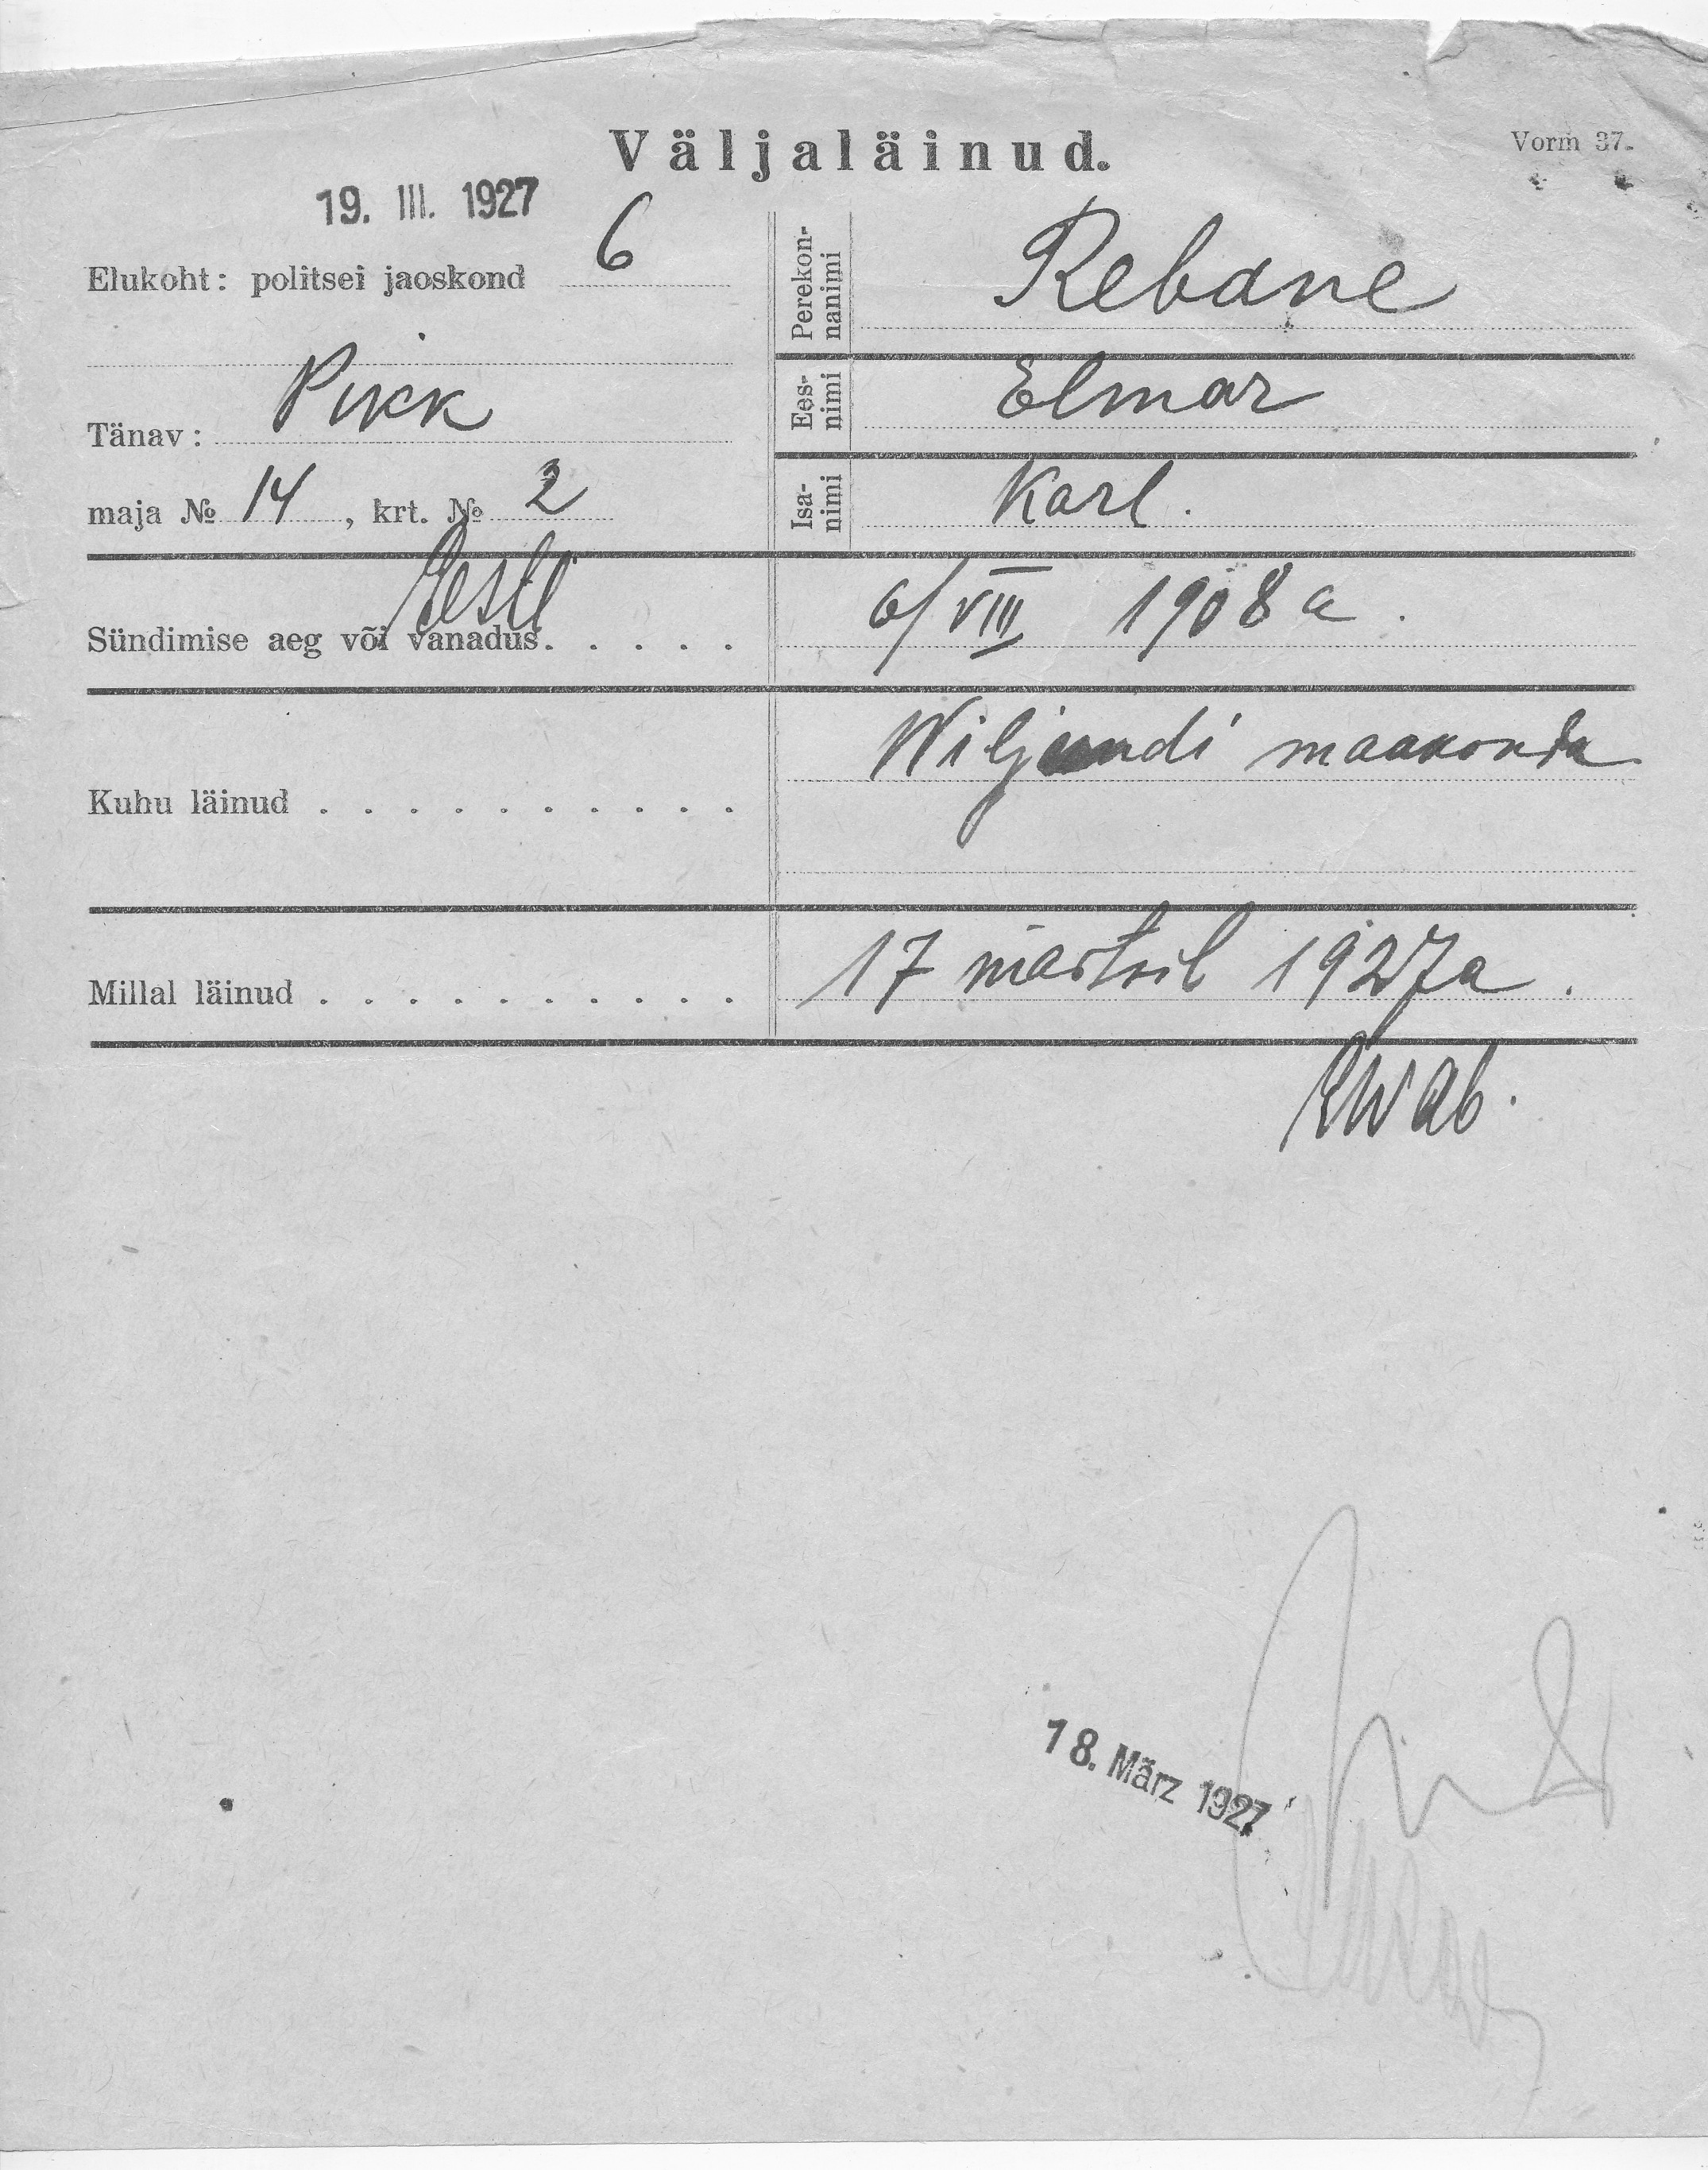 Väljaläinud.
Vorm 37.
19. III. 1927
Elukoht: politsei jaoskond 6
Tänav: Pikk
maja № 14, krt. № 2
Perekon-
nanimi
Rebane
Ees-
nimi
Elmar
Isa-
nimi
Karl.
Eesti
Sündimise aeg või vanadus. . . . . 6/VIII 1908 a.
Kuhu läinud . . . . . . . . . . Wiljandi maakonda
Millal läinud . . . . . . . . . . 17 märtsil 1927 a.
18. März 1927